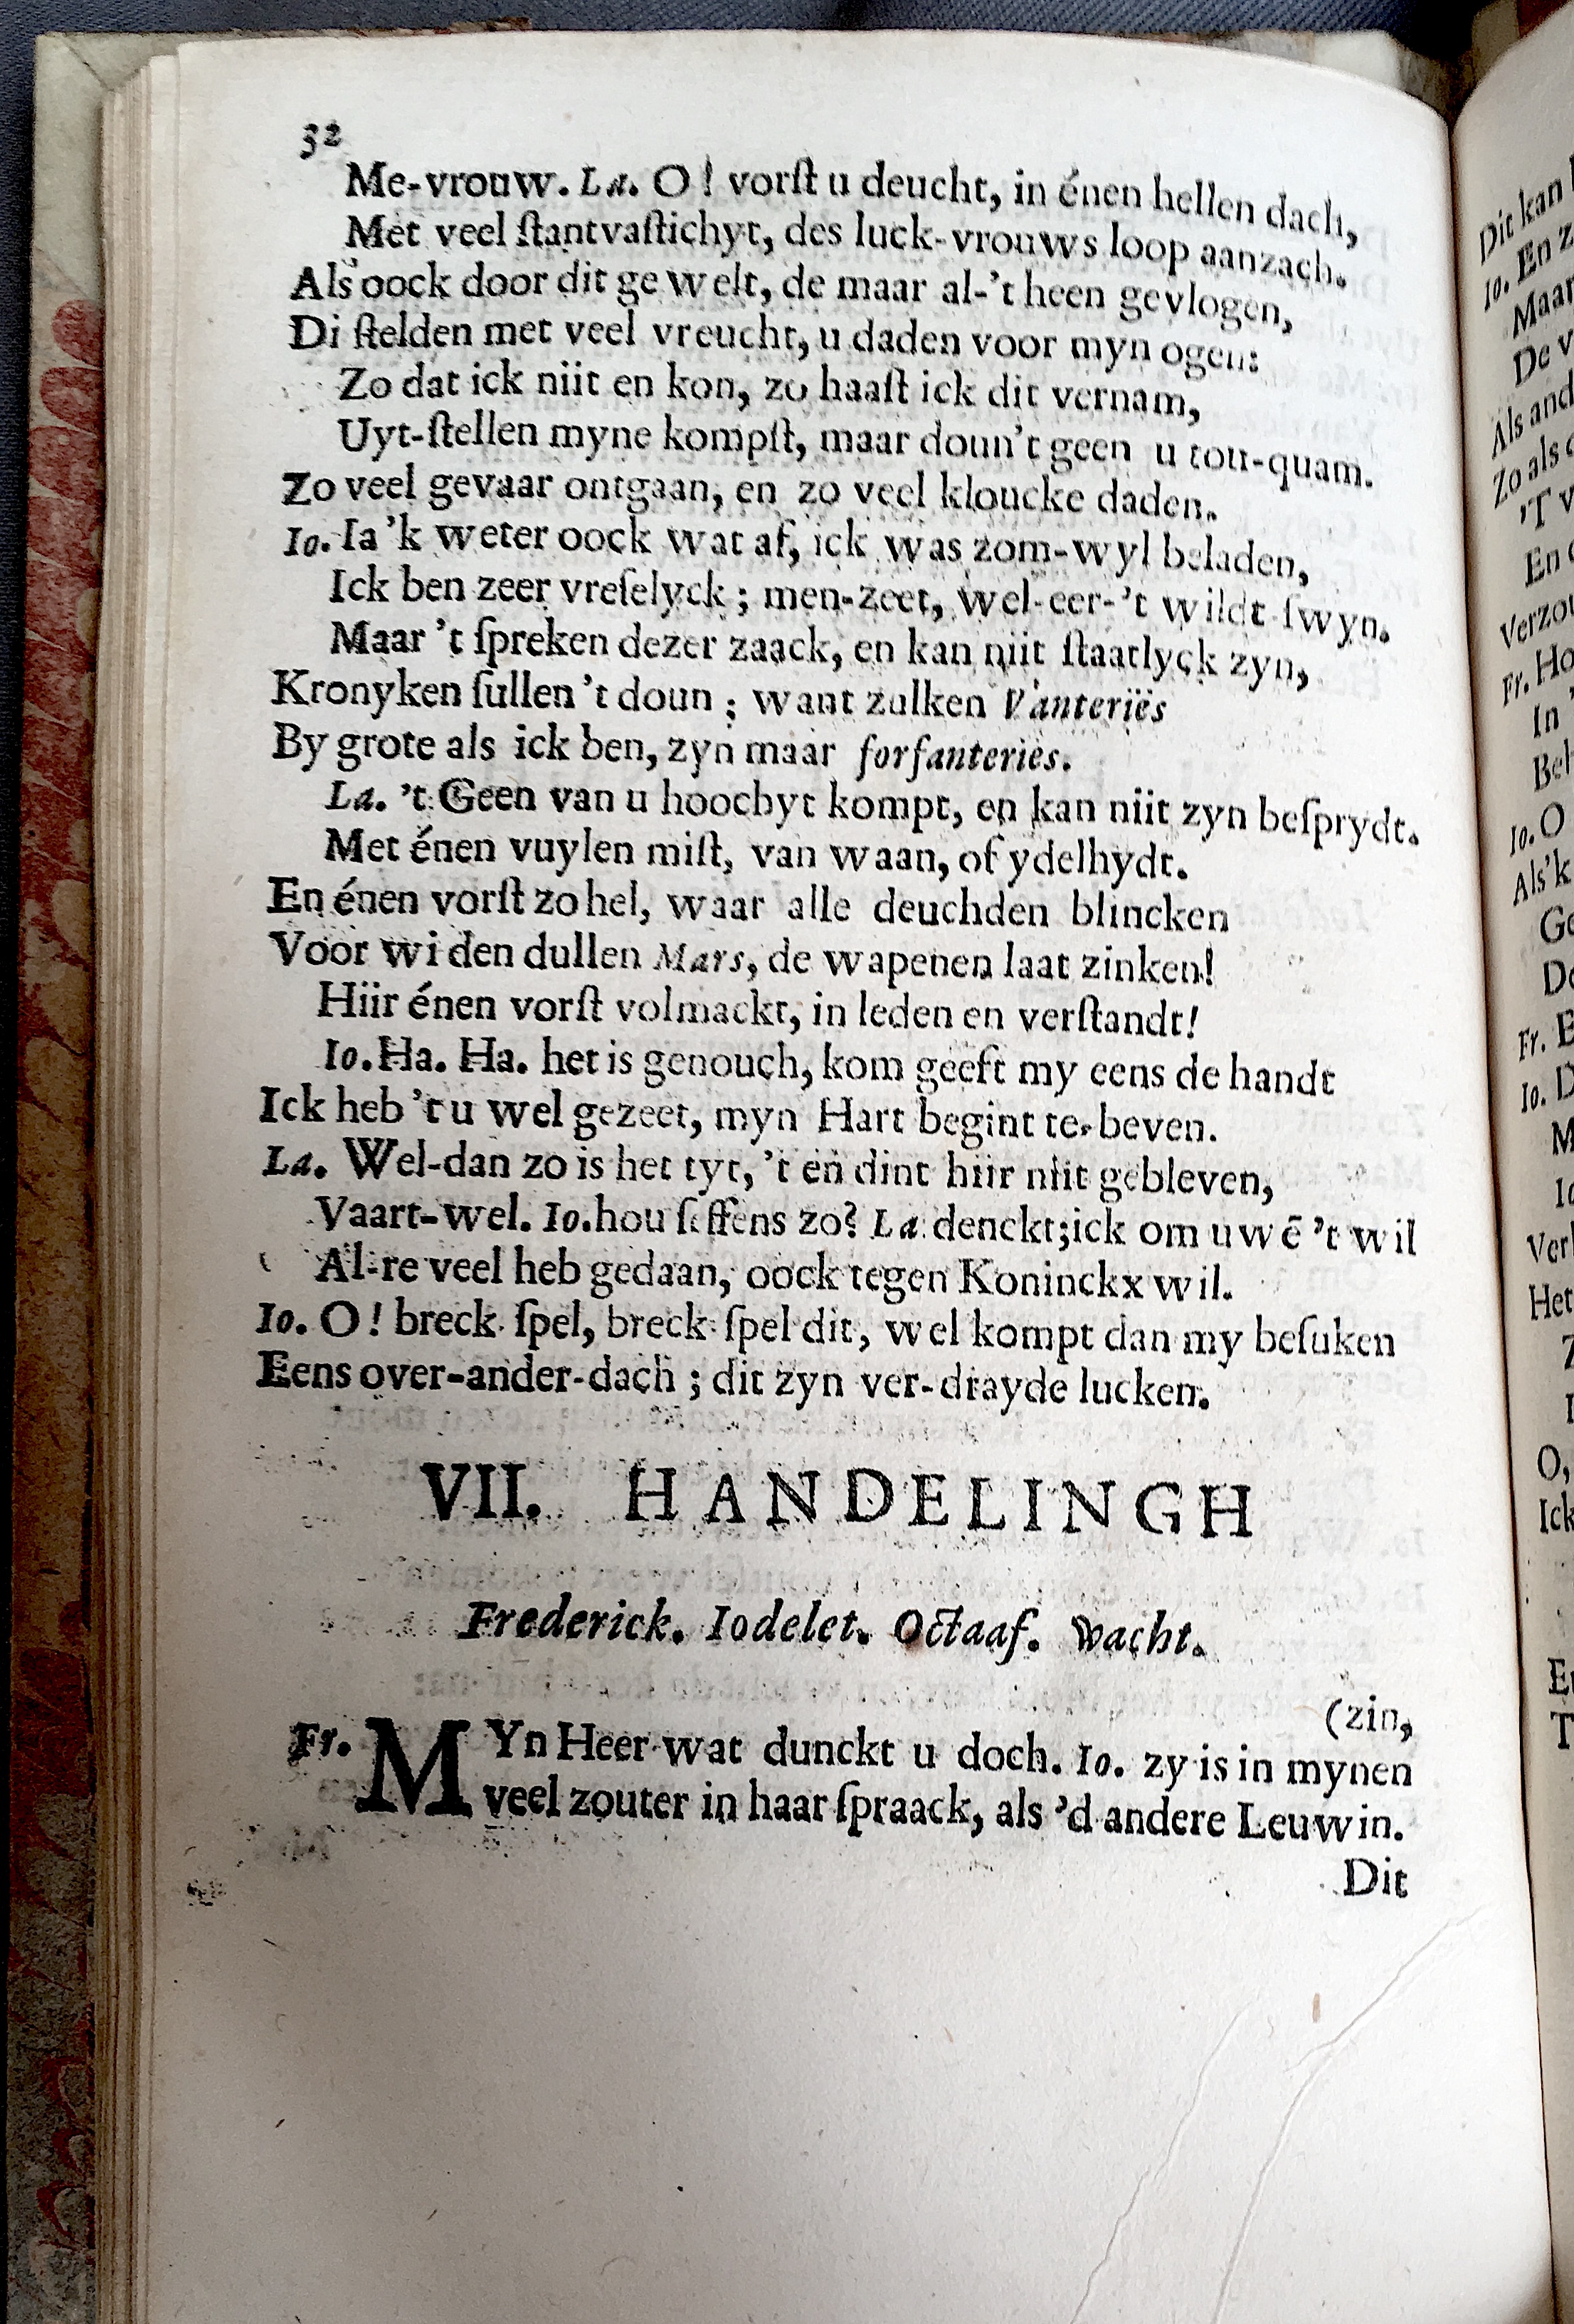 32
Me-vrouw. La. O! vorſt u deucht, in énen hellen dach,
Met veel ſtantvaſtichyt, des luck-vrouws loop aanzach.
Als oock door dit gewelt, de maar al-'t heen gevlogen,
Di ſtelden met veel vreucht, u daden voor myn ogen:
Zo dat ick niit en kon, zo haaſt ick dit vernam,
Uyt-ſtellen myne kompſt, maar doun't geen u tou-quam.
Zo veel gevaar ontgaan, en zo veel kloucke daden.
Io. Ia 'k weter oock wat af, ick was zom-wyl beladen,
Ick ben zeer vreſelyck; men-zeet, wel-eer-'t wildt-ſwyn.
Maar 't ſpreken dezer zaack, en kan niit ſtaatlyck zyn,
Kronyken ſullen 't doun; want zulken Vanteriës
By grote als ick ben, zyn maar forfanteriës.
La. 't Geen van u hoochyt kompt, en kan niit zyn beſprydt.
Met énen vuylen miſt, van waan, of ydelhydt.
En énen vorſt zo hel, waar alle deuchden blincken
Voor wi den dullen Mars, de wapenen laat zinken!
Hiir énen vorſt volmackt, in leden en verſtandt!
Io. Ha. Ha. het is genouch, kom geeft my eens de handt
Ick heb 't u wel gezeet, myn Hart begint te-beven.
La. Wel-dan zo is het tyt, 't en dint hiir niit gebleven,
Vaart-wel. Io. hou ſeffens zo? La denckt; ick om uwē 't wil
Al-te veel heb gedaan, oock tegen Koninckx wil.
Io. O! breck-ſpel, breck-ſpel dit, wel kompt dan my beſuken
Eens over-ander-dach; dit zyn ver-drayde lucken.
VII. HANDELINGH
Frederick. Iodelet. Octaaf. Wacht.
(zin,
Fr. MYn Heer wat dunckt u doch. Io. zy is in mynen
veel zouter in haar ſpraack, als 'd andere Leuwin.
Dit